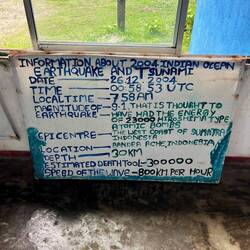 INFORMATION ABOUT 2004 INDIAN OCEAN
EARTHQUAKE AND TSUNAMI
DATE — 26.12.2004
TIME — 00:58:53 UTC
LOCAL TIME — 7:58AM
MAGNITUDE OF EARTHQUAKE — 9.1. THAT IS THOUGHT TO
HAVE HAD THE ENERGY
OF 23000 HIROSHIMA TYPE
ATOMIC BOMBS
EPICENTRE — THE WEST COAST OF SUMATRA
INDONESIA
LOCATION — BANDER ACHE, INDONESIA
DEPTH — 30KM
ESTIMATED DEATH TOOL — 300000
SPEED OF THE WAVE — 800KM PER HOUR